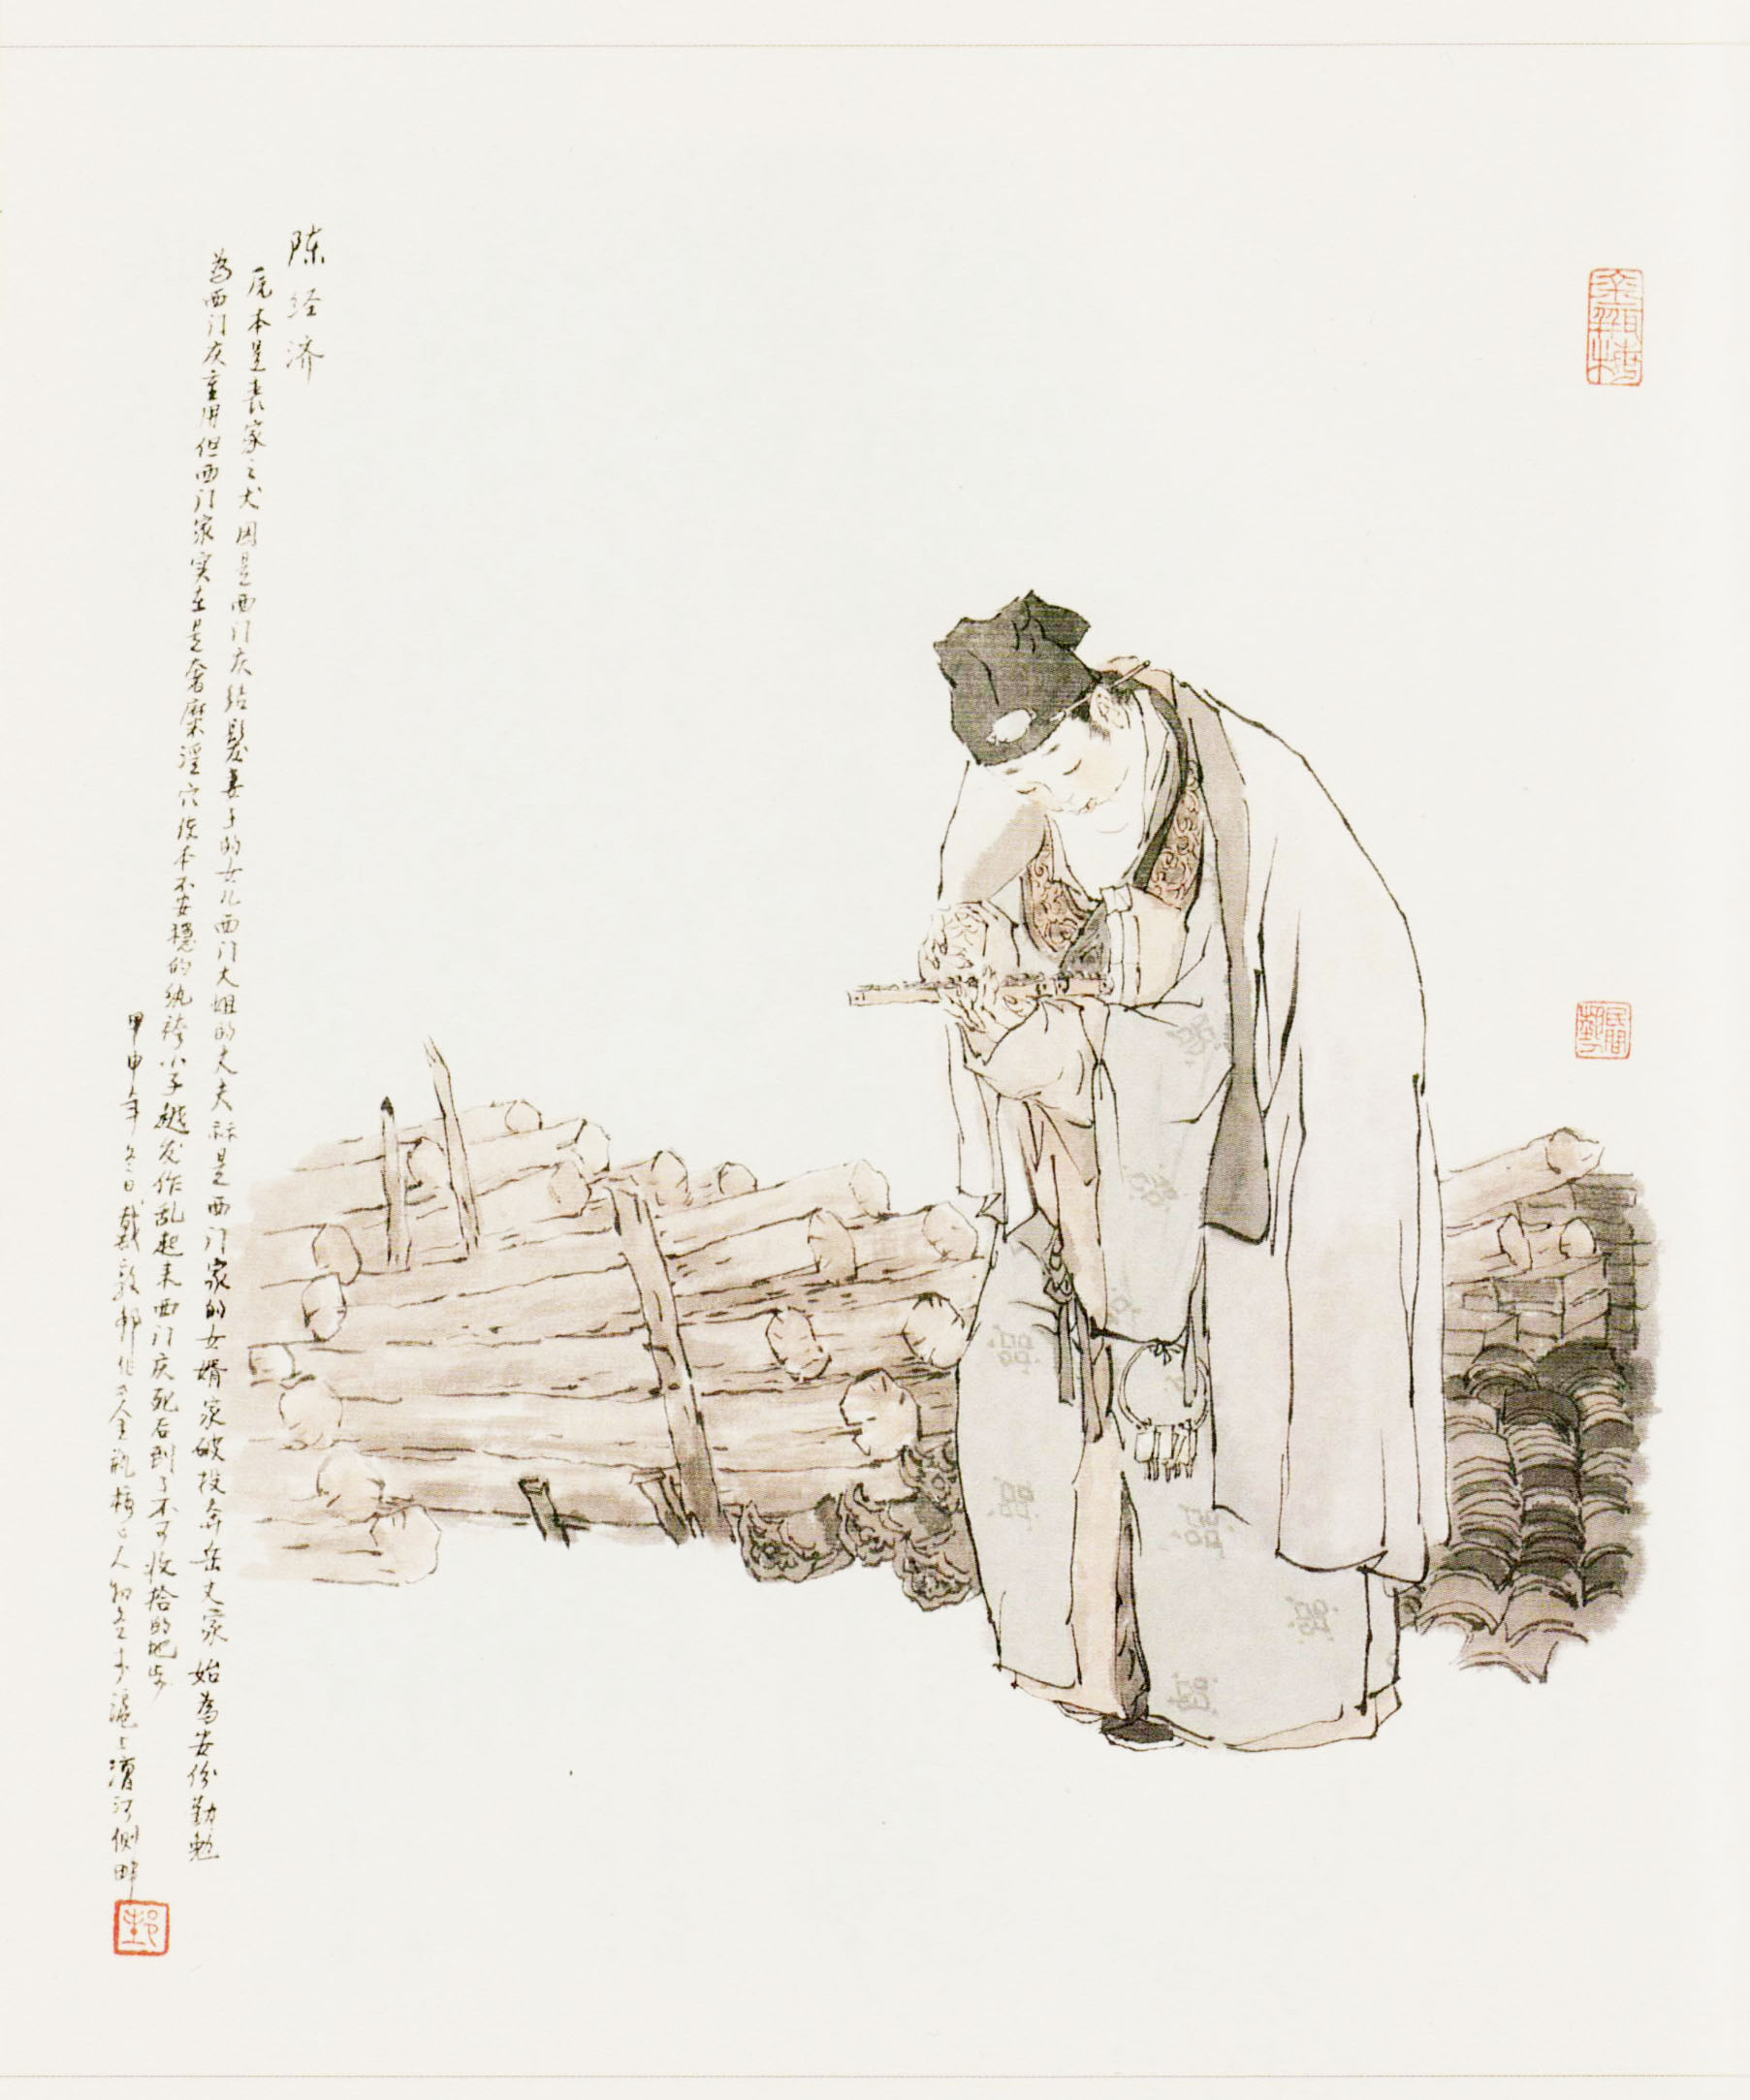 陈经济
原本是丧家之犬因是西门庆结髮妻子的女儿西门大姐的丈夫祘是西门家的女婿家破投奔岳丈家始為安份勤勉
為西门庆重用但西门家实在是奢靡淫穴使本不安穩的纨袴小子越发作乱起来西门庆死后到了不可收拾的地步
甲申年冬日戴敦邦作金瓶梅人物於滬上漕河側畔
金瓶梅
民間藝
邦